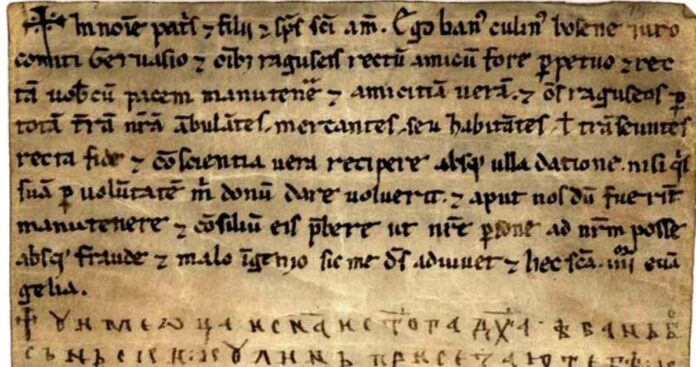 ✠ In noīe pat's ⁊ filii ⁊ sp̄s sc̄i am̄. Ego ban' culin' bosene iuro
comiti Geruasio ⁊ oībȝ raguseis rectū amicū fore ꝑpetuo ⁊ rec
tā uob̄cū pacem manutene ⁊ amicitiā verā. ⁊ oēs raguseos ꝑ
totā t̄rā nr̄ā ābulātes. mercantes. seu habitātes ł trāseuntes
recta fide ⁊ cōscientia vera recipere absqȝ ulla datione. nisi
suā ꝑ volūtatē m̄ donū dare voluerit. ⁊ aput nos dū fuerīt
manutenere ⁊ cōsiliū eis p̄bere ut nr̄e ꝑsone ad nr̄m posse
absqȝ fraude ⁊ malo īgenio sic me d̄s adiuuet ⁊ hec sc̄a .iiii. euā
gelia.
✝ У име ѡца и сн҃а и ст҃ога дх҃а ѣ бань бо
сьньски кулинь присезаю тебѣ